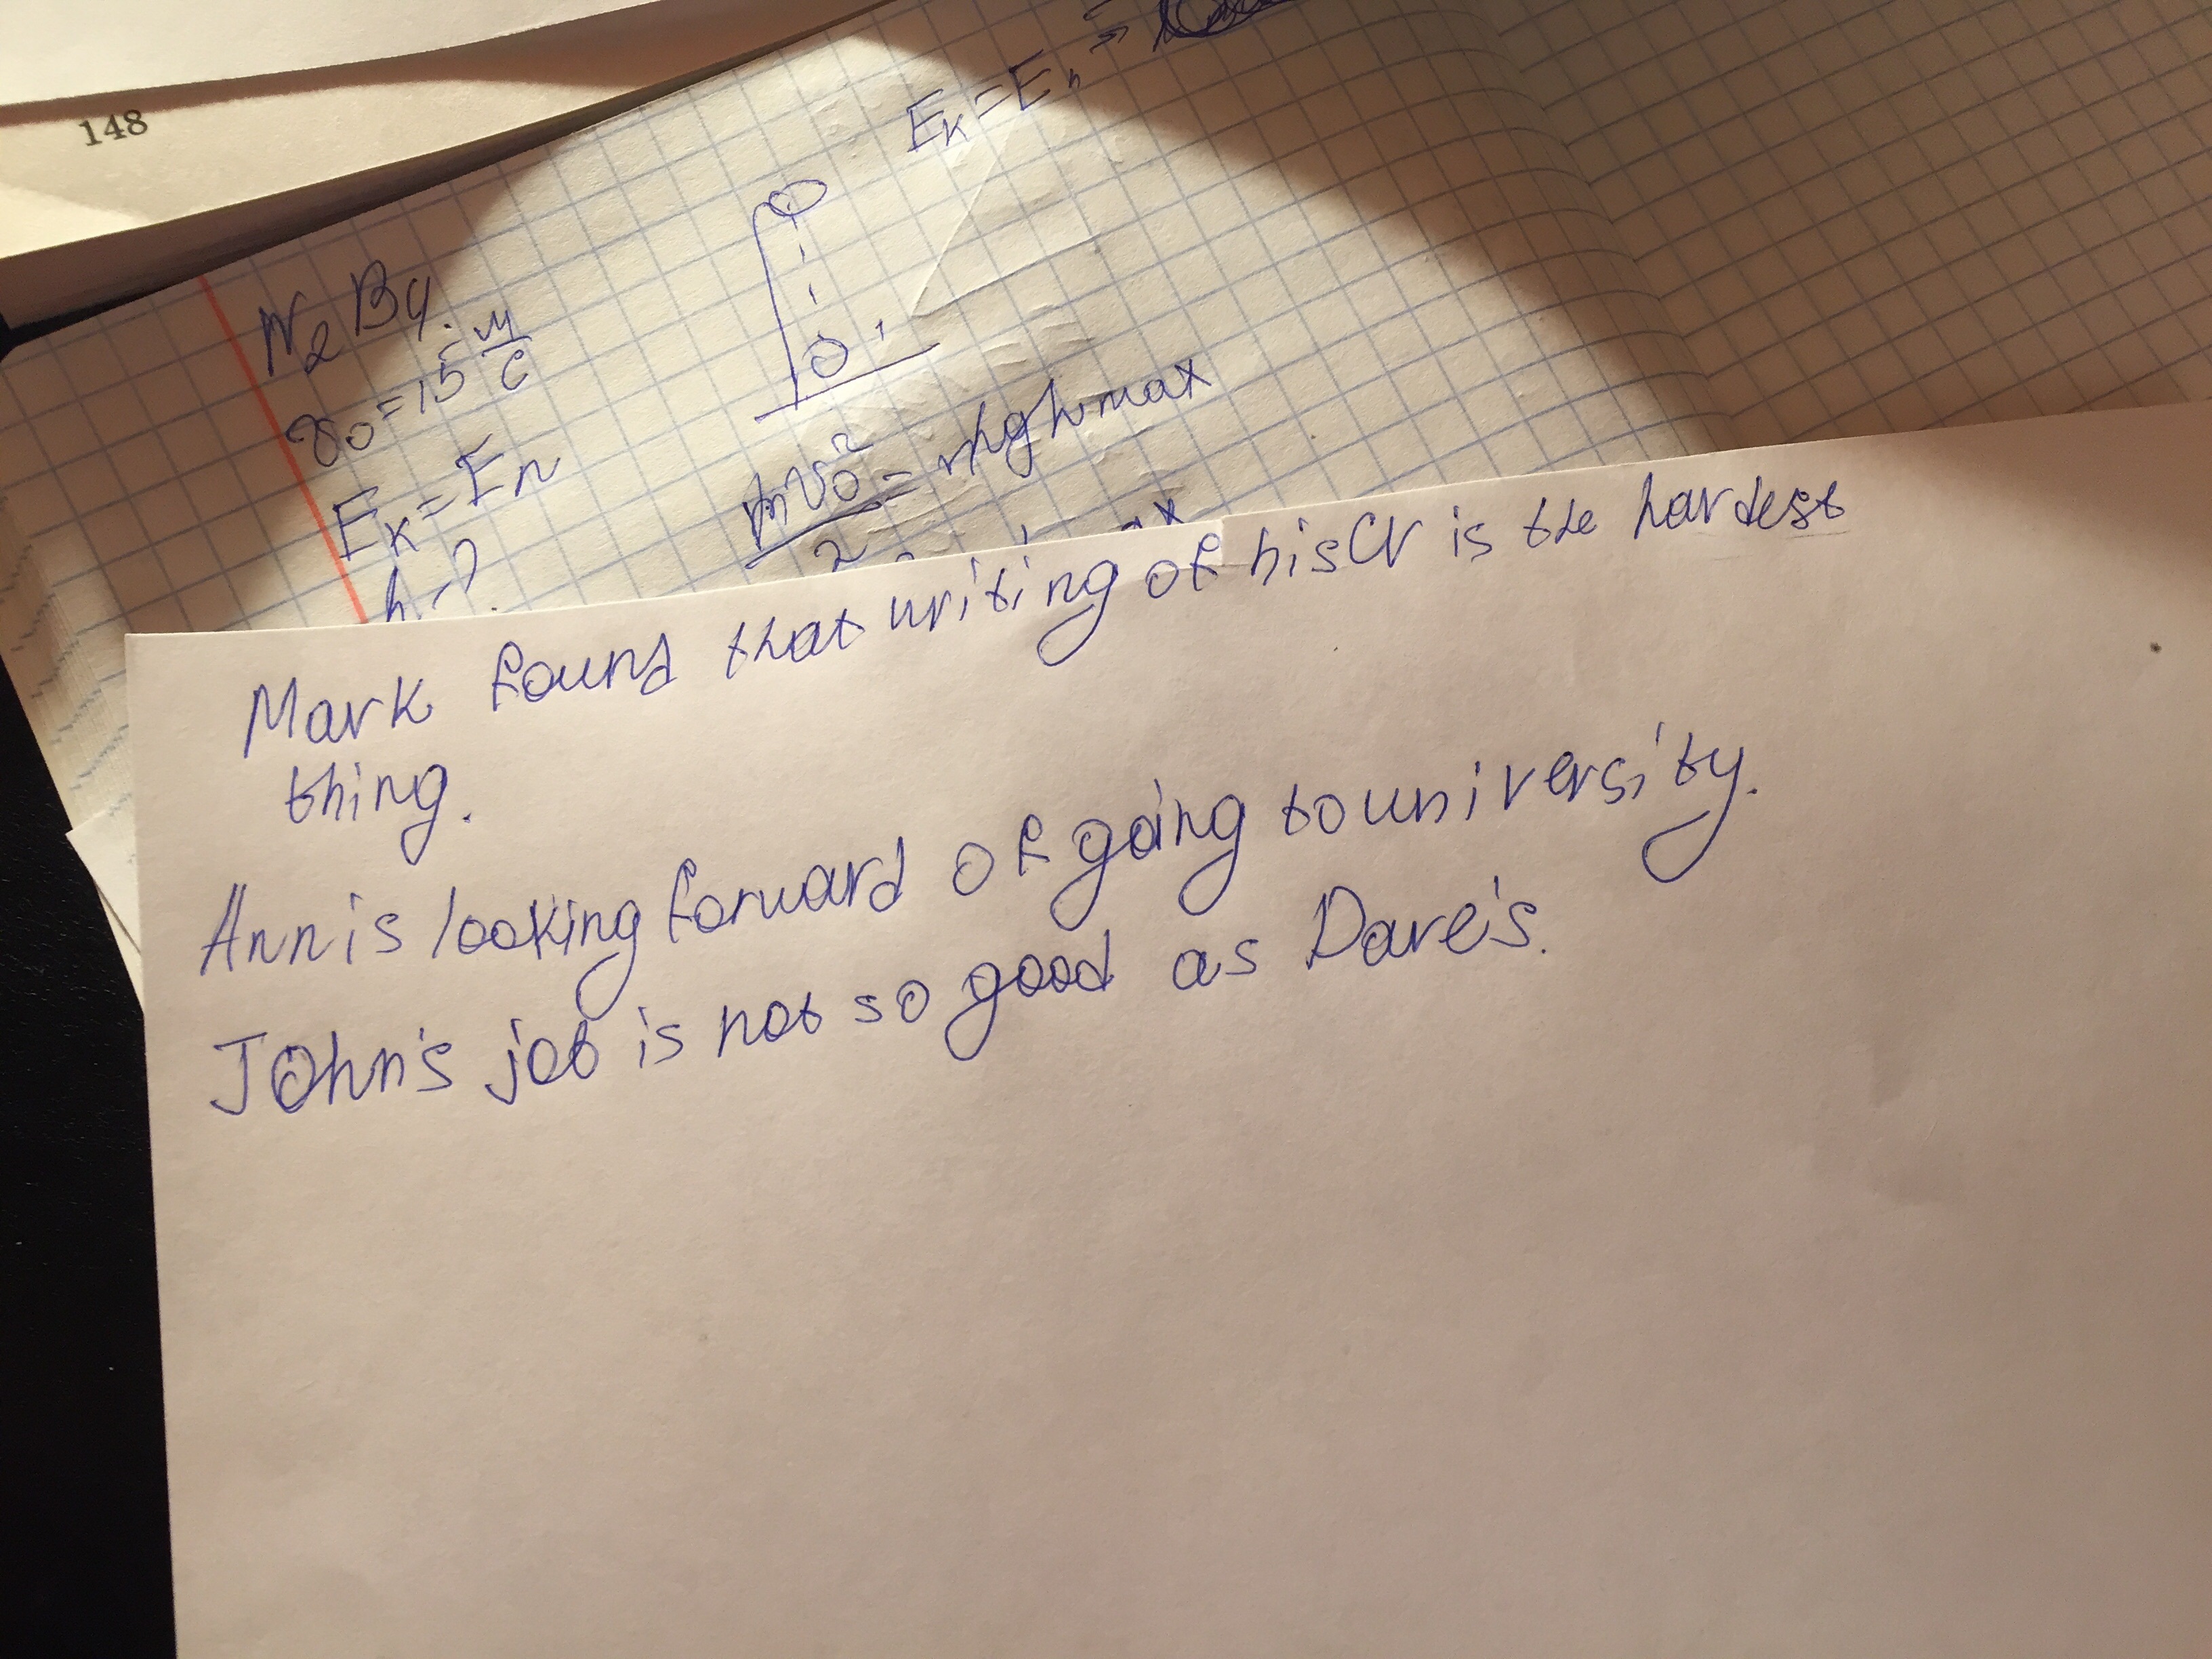 148
Eк = Eп =
N2 B4.
v0 = 15 м/с
Eк = Eп
h - ?
mv0²/2 = mghmax
Mark found that writing of his CV is the hardest
thing.
Ann is looking forward of going to university.
John's job is not so good as Dave's.